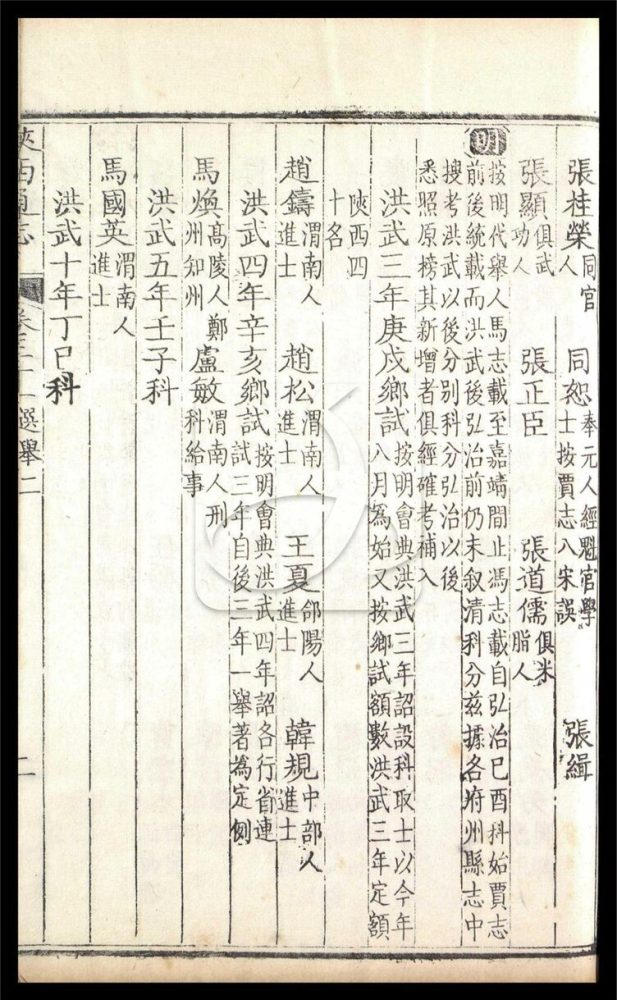 張桂榮同官人 同恕奉元人經魁官學士按賈志入宋誤 張緝
張顯俱武功人 張正臣 張道儒俱米脂人
明
按明代舉人馬志載至嘉靖間止馮志載自弘治己酉科始賈志
前後統載而洪武後弘治前仍未叙清科分茲據各府州縣志中
搜考洪武以後分別科分弘治以後
悉照原榜其新增者俱經確考補入
洪武三年庚戌鄉試按明會典洪武三年詔設科取士以今年
八月為始又按鄉試額數洪武三年定額
陝西四
十名
趙鑄渭南人進士 趙松渭南人進士 王夏郃陽人進士 韓規中部人進士
洪武四年辛亥鄉試按明會典洪武四年詔各行省連
試三年自後三年一舉著為定例
馬煥高陵人鄭州知州 盧敏渭南人刑科給事
洪武五年壬子科
馬國英渭南人進士
洪武十年丁巳科
陝西通志 卷三十一 選舉二 二